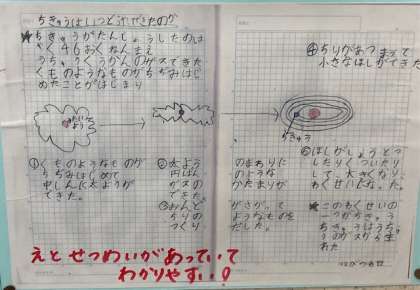 ちきゅうはいつどうできたのか
★ちきゅうがたんじょうしたのは
やく46おくねんまえ
うちゅうくうかんのガスでできた
くものようなものがちぢみはじ
めたことがはじまり
たいよう
①くものようなものが
ちぢみはじめて
中しんに太ようが
できた。
②太よう
円ばん
ガスの
できた。
③おんど
ちりの
つくり
④ちりがあつまって
小さなほしができた
ちきゅう
のまわりに
のような
かたまりが
⑤ほしがしょうとつ
したりくっついたり
して、大きくなり、
わくせいになった。
がさがって
ようなものを
だした。
★このわくせい
の一つがちきゅう
ちきゅうはうちゅ
うのガスから生
れた
えとせつめいがあっていて
わかりやすい！